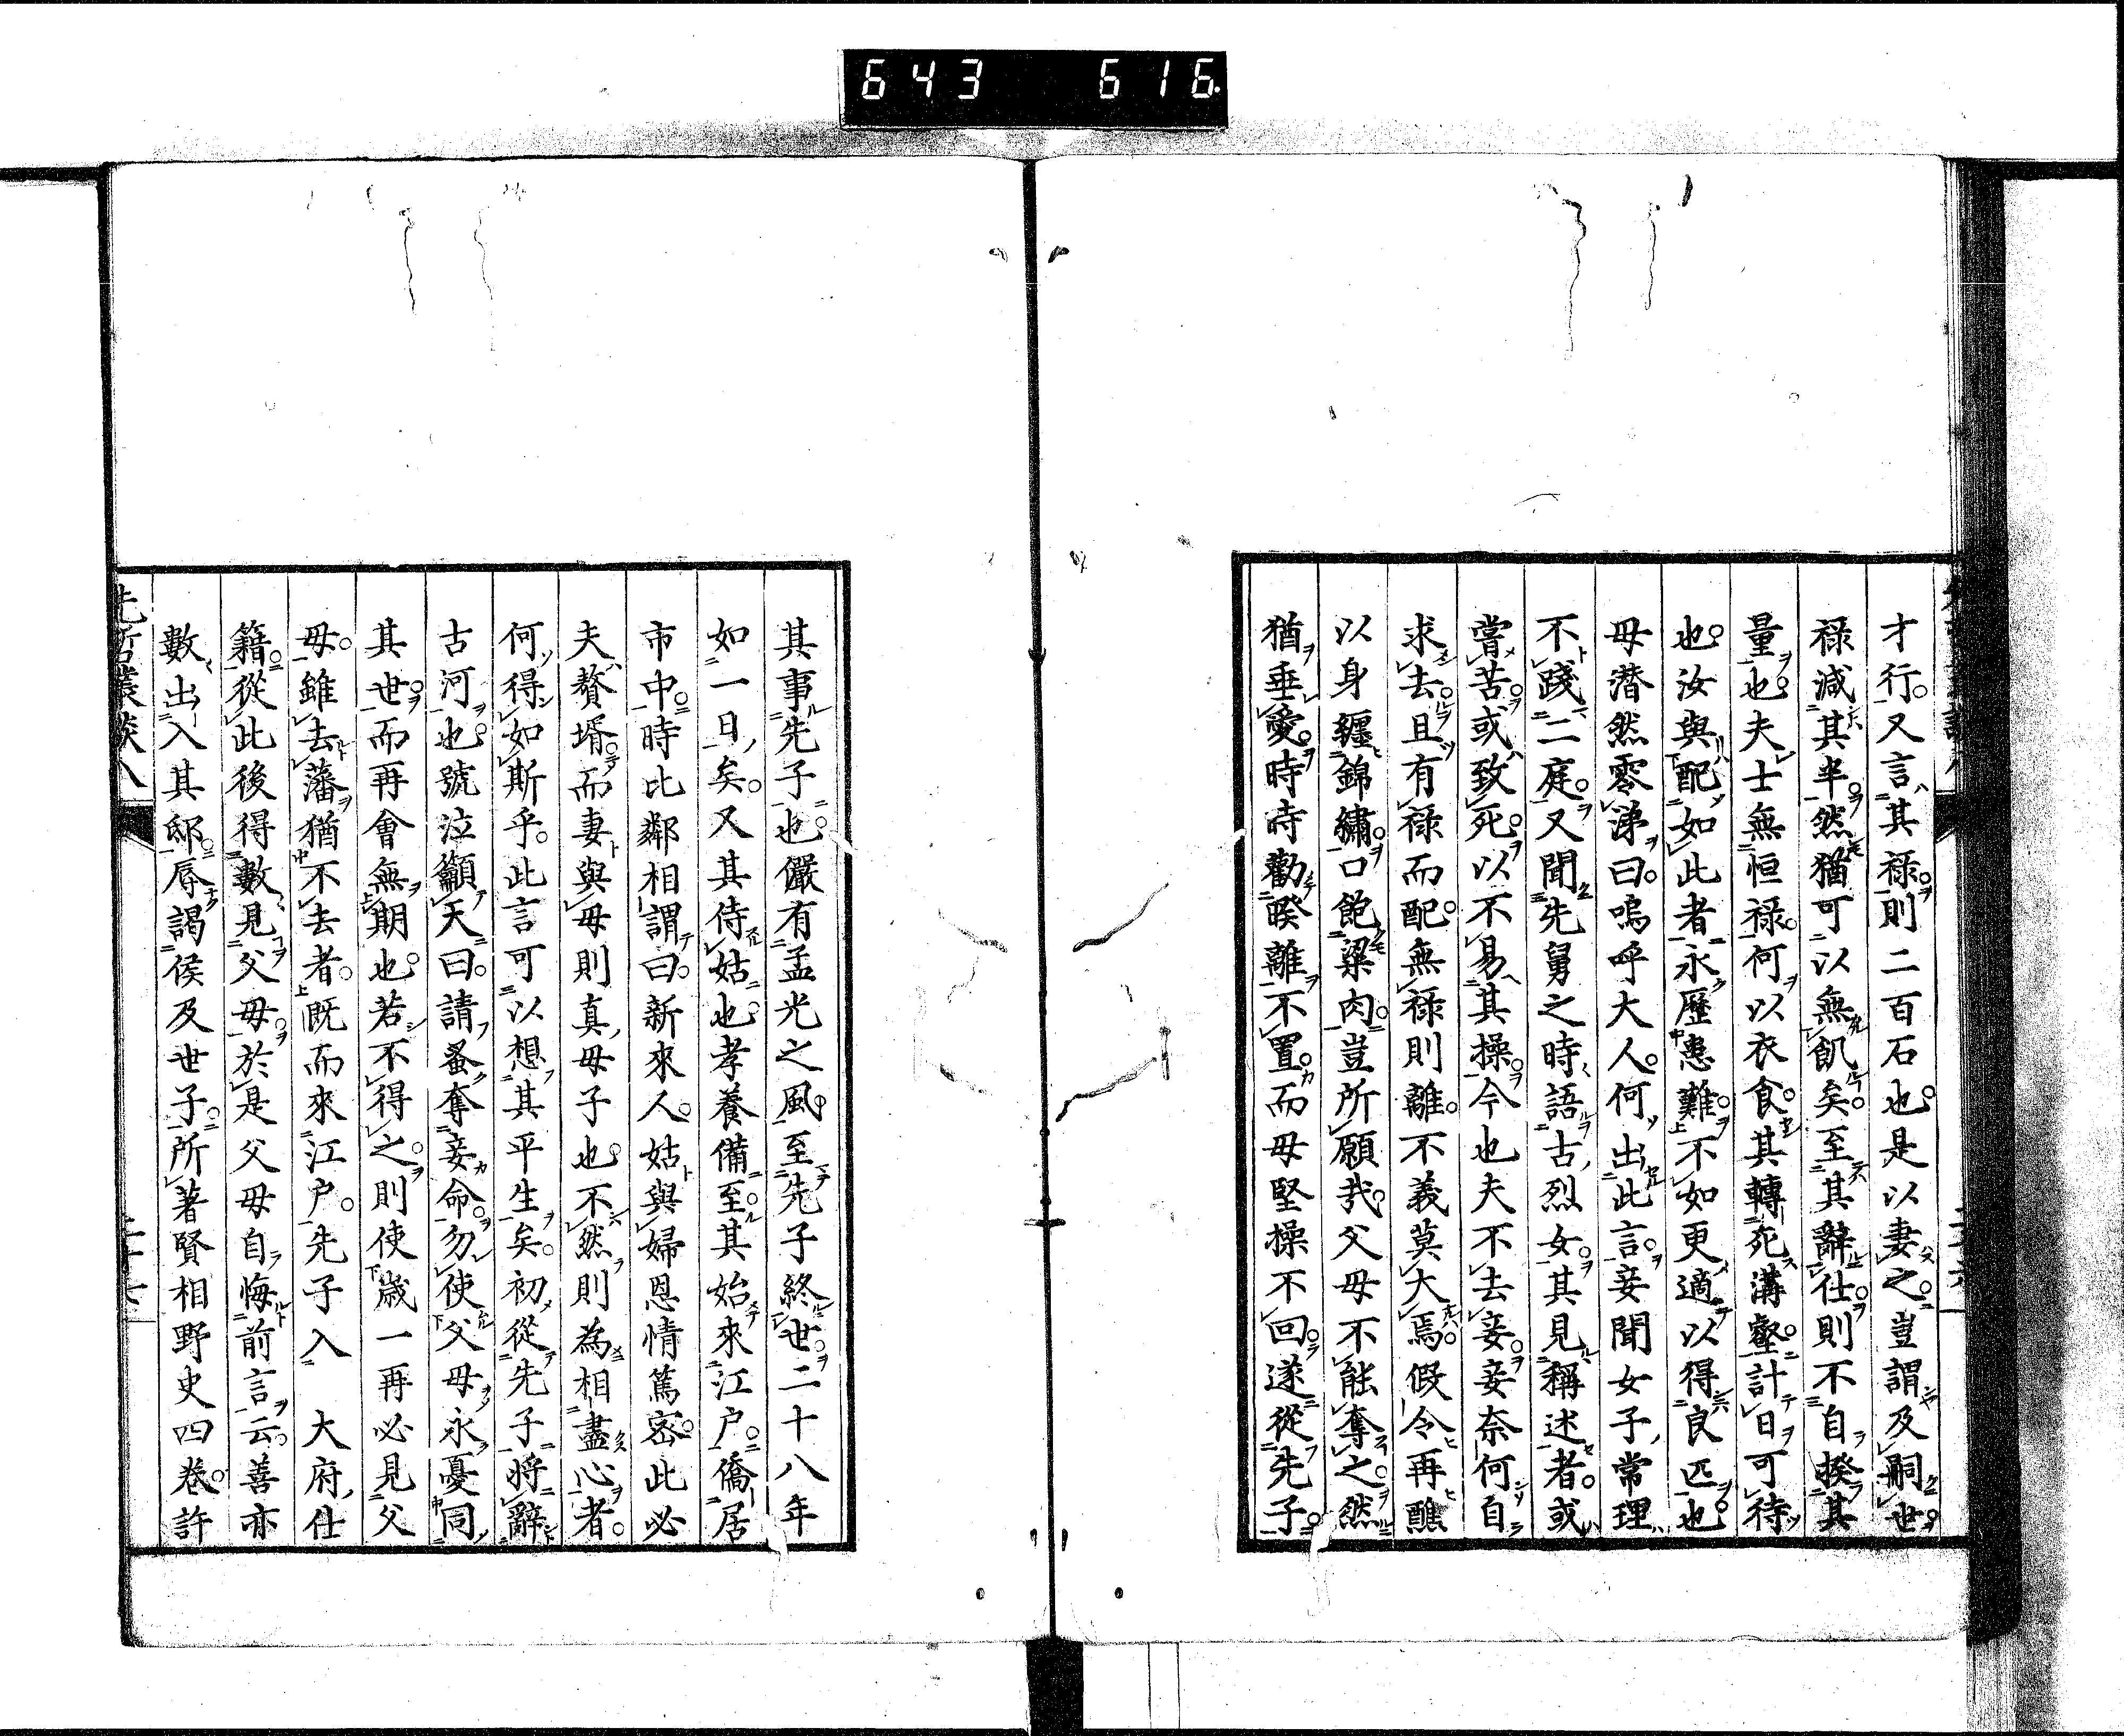 643 616.
才行。又言其祿。則二百石也。是以妻之。豈謂及嗣世。
祿減其半。然猶可以無飢矣。至其辭仕。則不自揆其
量也。夫士無恒祿。何以衣食。其轉死溝壑。計日可待
也。汝與配如此者。永歷患難。不如更適以得良匹也。
母潜然零涕曰。嗚呼大人。何出此言。妾聞女子常理
不踐二庭。又聞先舅之時語古烈女。其見稱述者。或
嘗苦。或致死。以不易其操。今也夫不去妾。妾奈何自
求去。且有祿而配。無祿則離。不義莫大焉。假令再醮
以身纏錦繡。口飽粱肉。豈所願哉。父母不能奪之。然
猶垂愛。時時勸暌離不置。而母堅操不回。遂從先子。
其事先子也。儼有孟光之風。至先子終世。二十八年
如一日矣。又其侍姑也。孝養備至。其始來江戶。僑居
市中。時比鄰相謂曰。新來人。姑與婦恩情篤密。此必
夫贅壻。而妻與母則真母子也。不然則為相盡心者。
何得如斯乎。此言可以想其平生矣。初從先子將辭
古河也。號泣籲天曰。請蚤奪妾命。勿使父母永憂同
其世。而再會無期也。若不得之。則使歲一再必見父
母。雖去藩猶不去者。既而來江戶。先子入 大府仕
籍。從此後得數見父母。於是父母自悔前言云。善亦
數出入其邸。辱謁侯及世子。所著賢相野史四卷。許
先哲叢談八